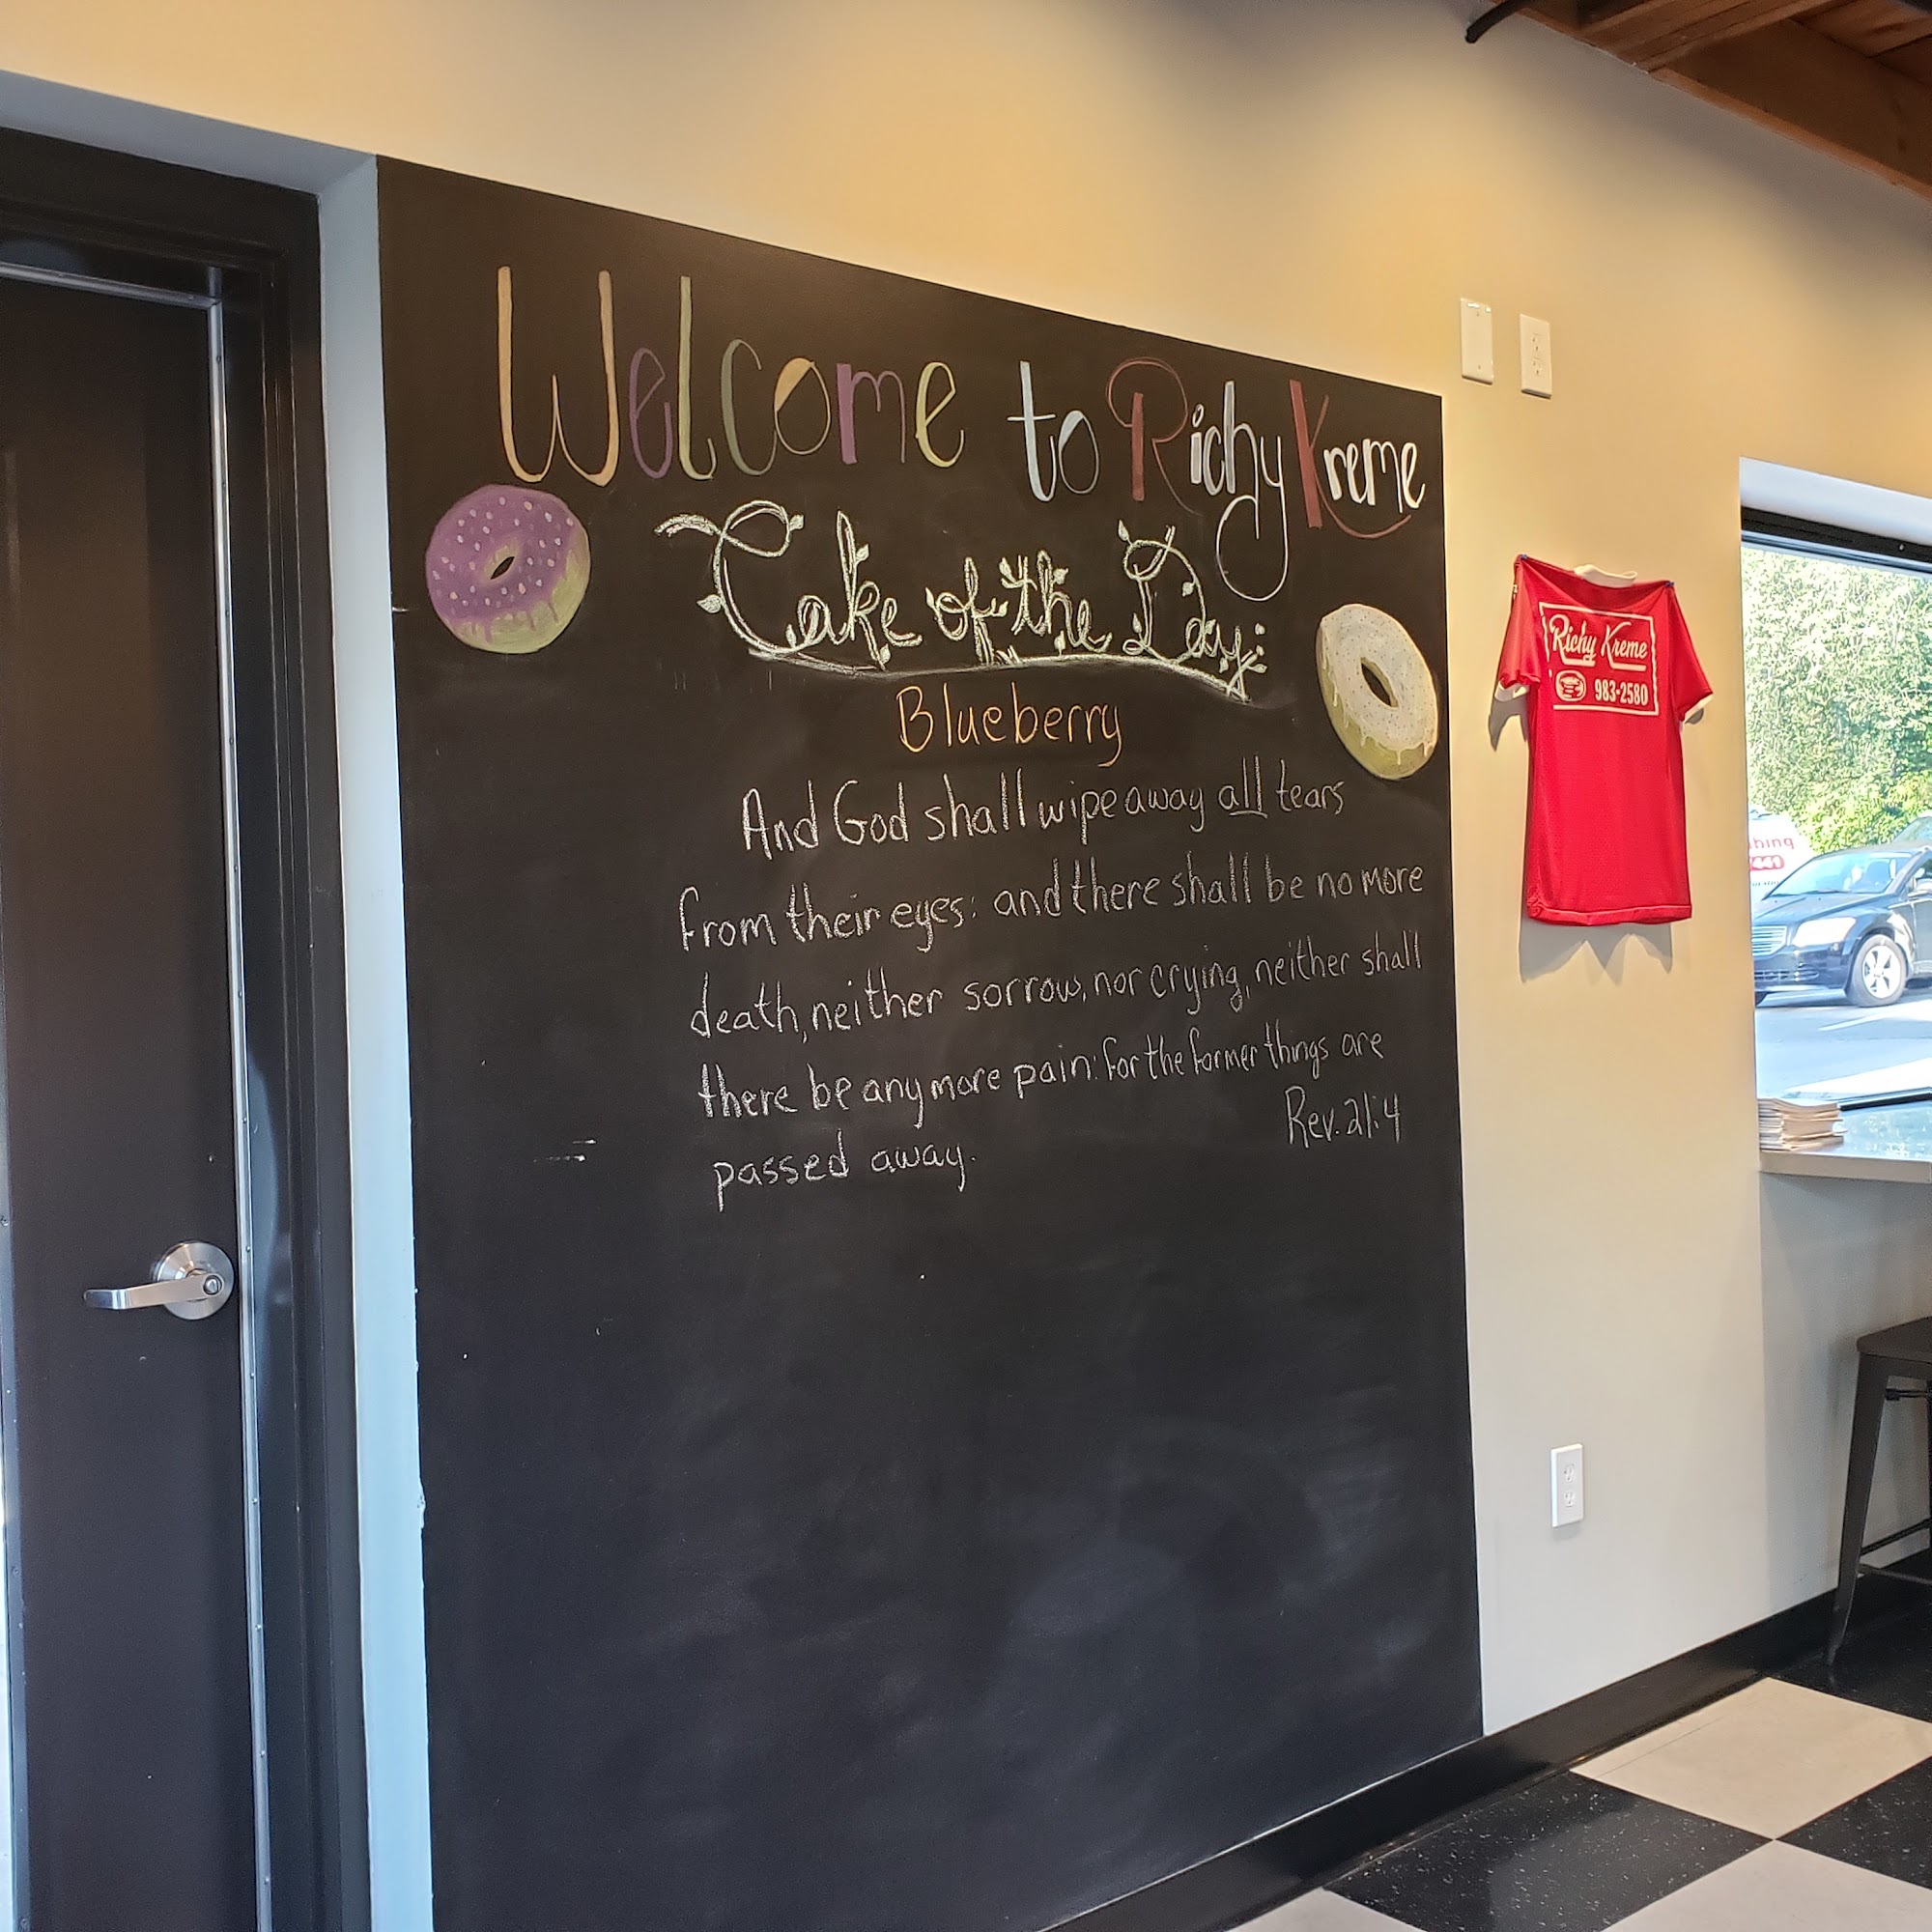 Welcome to Richy Kreme
Cake of the Day:
Blueberry
And God shall wipe away all tears
from their eyes: and there shall be no more
death, neither sorrow, nor crying, neither shall
there be any more pain: for the former things are
passed away.
Rev. 21:4
Richy Kreme
983-2580